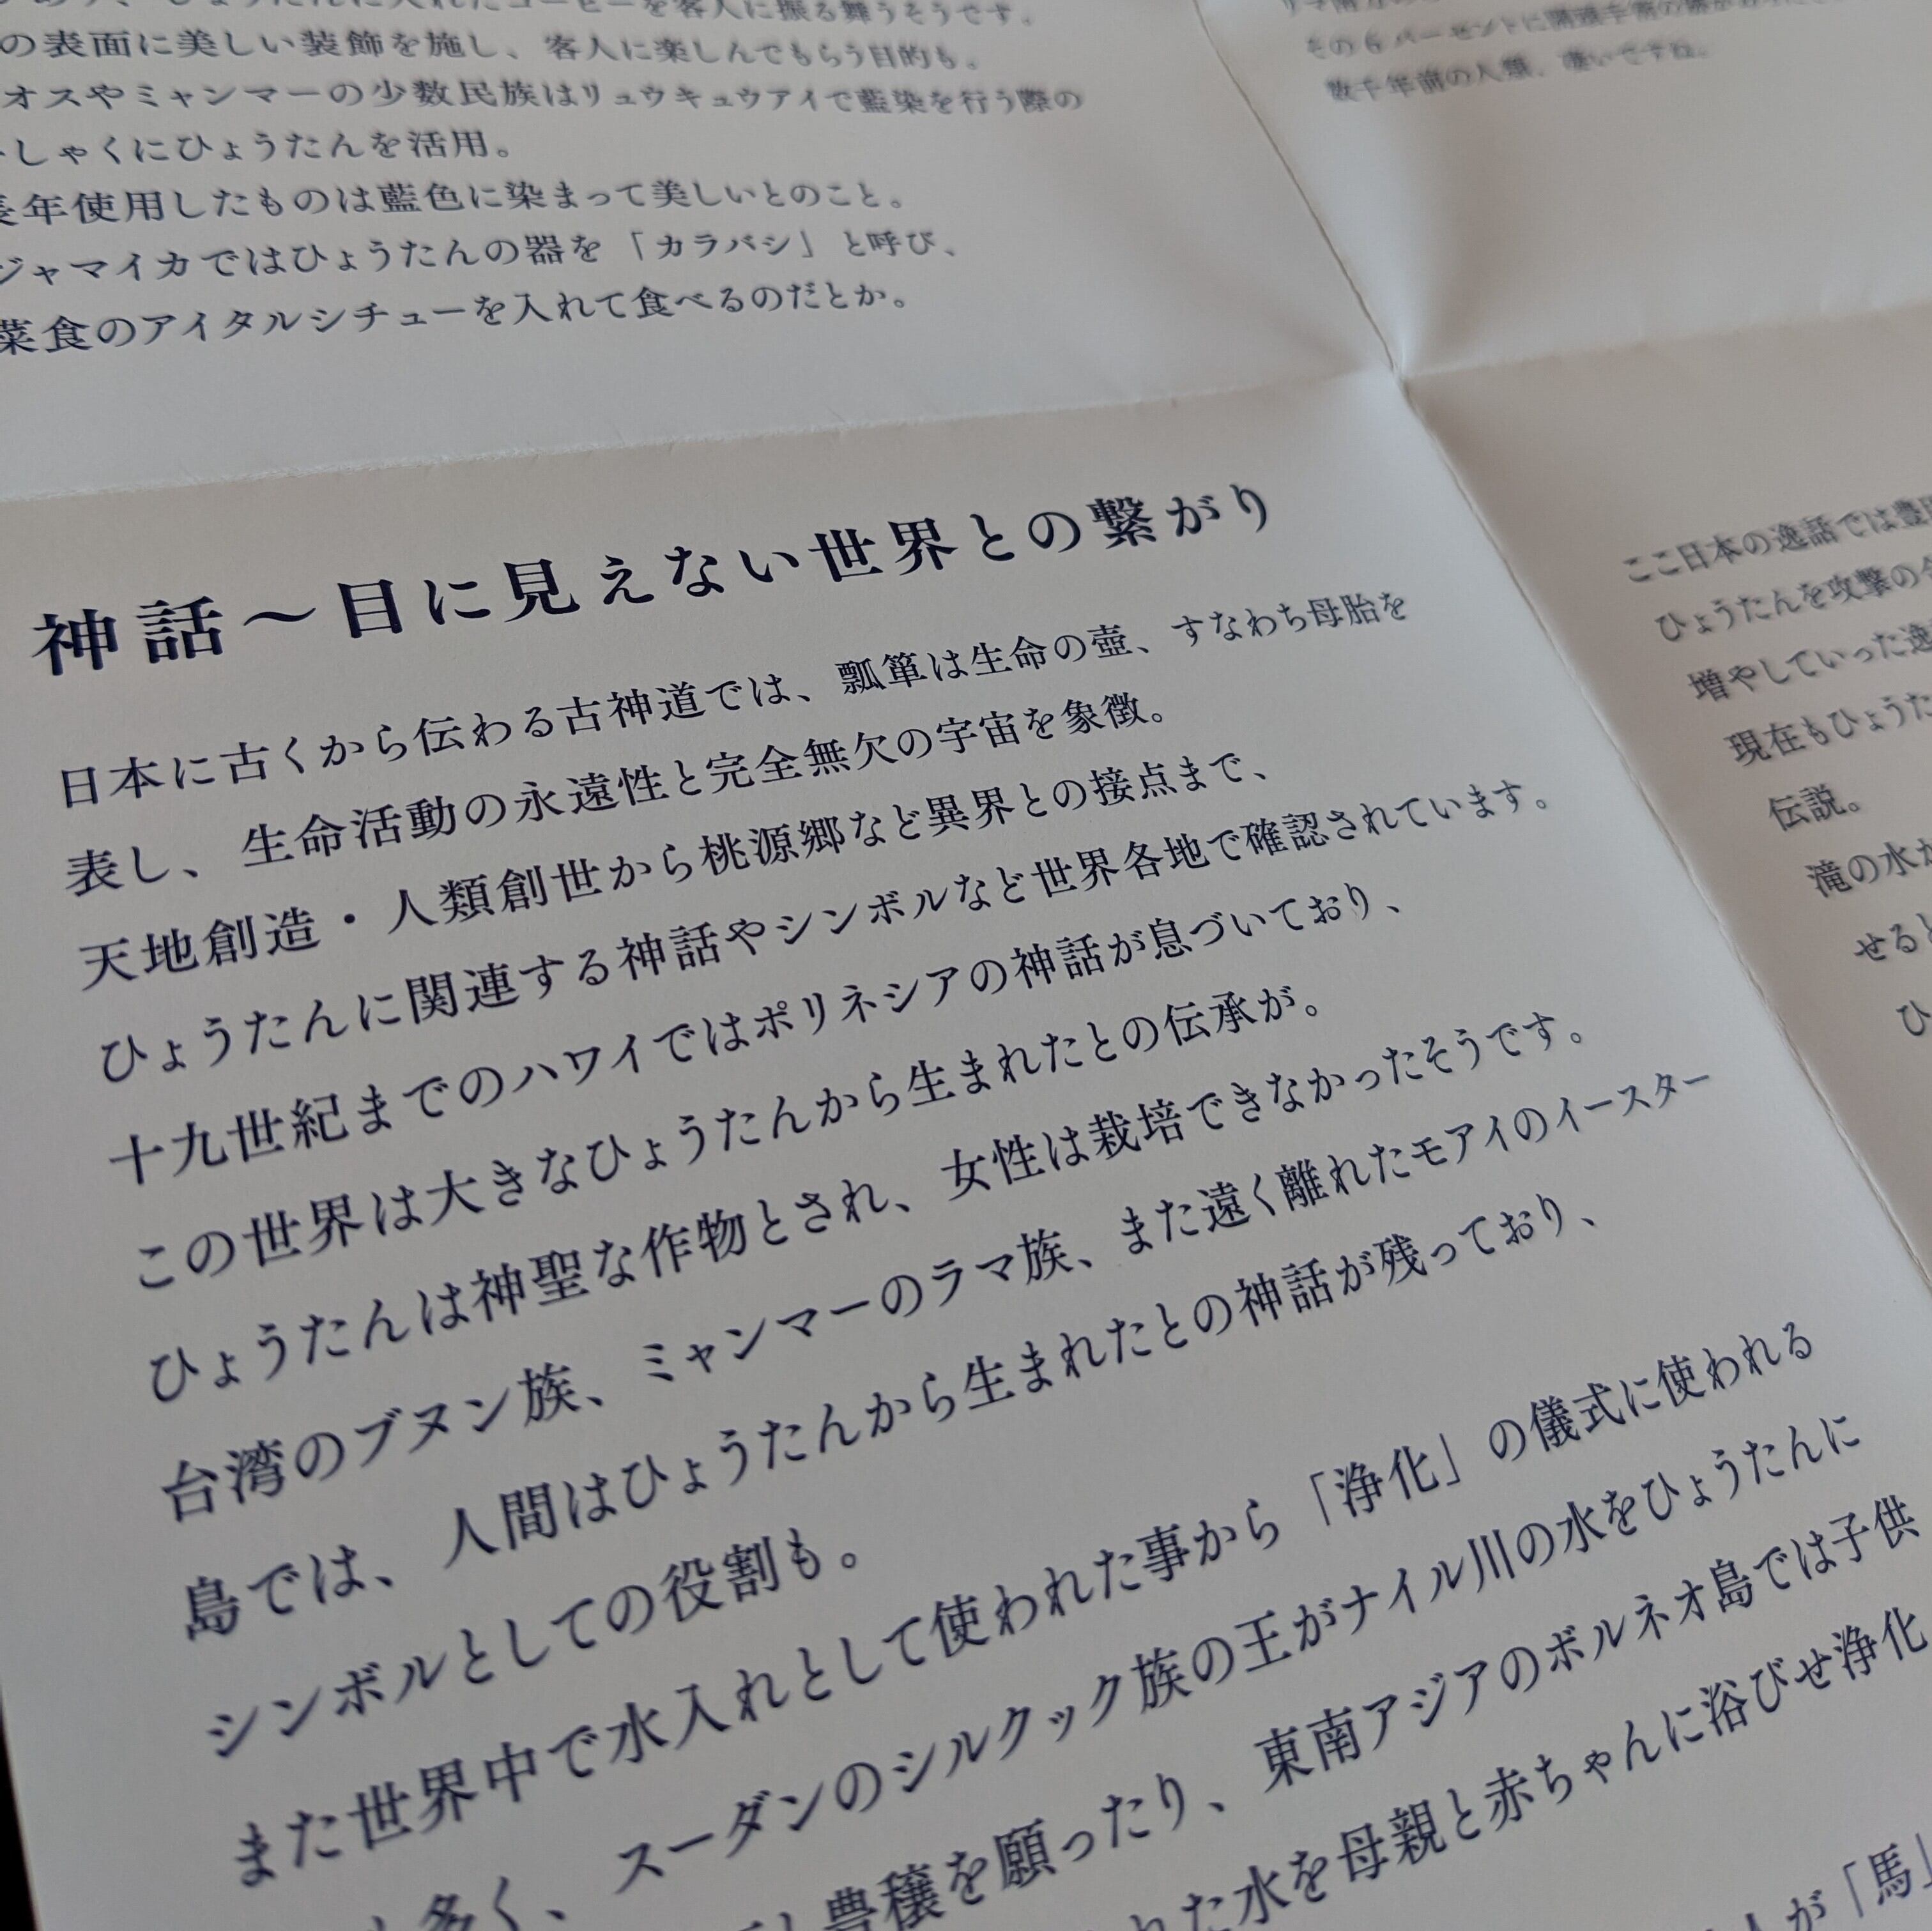 ひょうたんに入れたコーヒーを客人に振る舞うそうです。
の表面に美しい装飾を施し、客人に楽しんでもらう目的も。
オスやミャンマーの少数民族はリュウキュウアイで藍染を行う際の
しゃくにひょうたんを活用。
長年使用したものは藍色に染まって美しいとのこと。
ジャマイカではひょうたんの器を「カラバシ」と呼び、
菜食のアイタルシチューを入れて食べるのだとか。
数千年前の人類、凄いですね。
神話〜目に見えない世界との繋がり
日本に古くから伝わる古神道では、瓢箪は生命の壺、すなわち母胎を
表し、生命活動の永遠性と完全無欠の宇宙を象徴。
天地創造・人類創世から桃源郷など異界との接点まで、
ひょうたんに関連する神話やシンボルなど世界各地で確認されています。
十九世紀までのハワイではポリネシアの神話が息づいており、
この世界は大きなひょうたんから生まれたとの伝承が。
ひょうたんは神聖な作物とされ、女性は栽培できなかったそうです。
台湾のブヌン族、ミャンマーのラマ族、また遠く離れたモアイのイースター
島では、人間はひょうたんから生まれたとの神話が残っており、
シンボルとしての役割も。
また世界中で水入れとして使われた事から「浄化」の儀式に使われる
も多く、スーダンのシルクック族の王がナイル川の水をひょうたんに
豊穣を願ったり、東南アジアのボルネオ島では子供
れた水を母親と赤ちゃんに浴びせ浄化
が「馬」
ここ日本の逸話では豊
ひょうたんを攻撃の
増やしていった逸
現在もひょうた
伝説。
滝の水が
せると
ひ